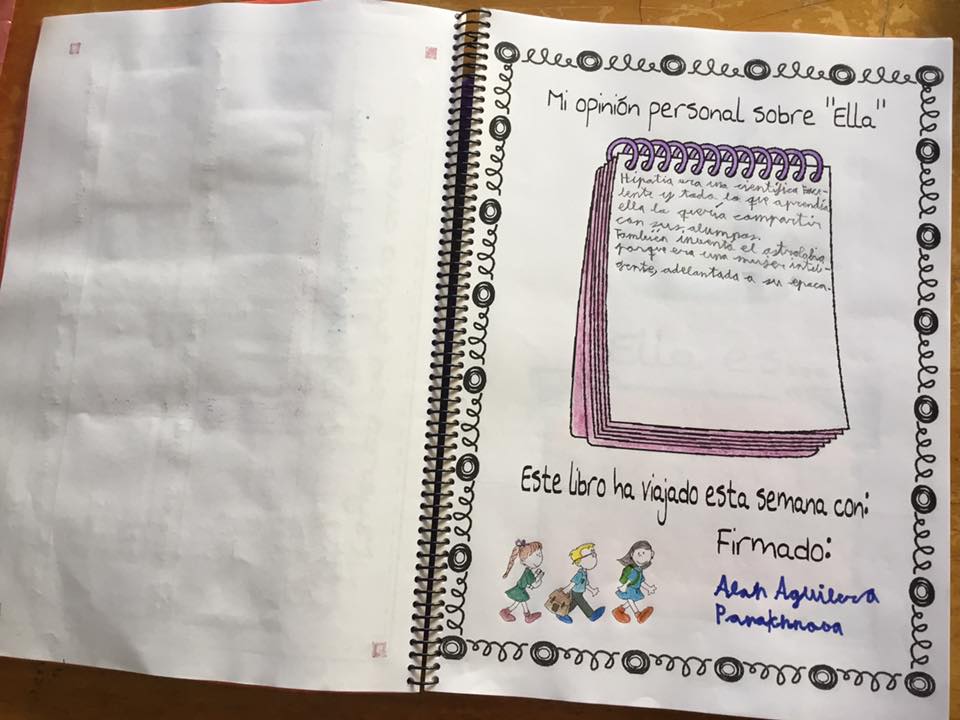 Mi opinión personal sobre "Ella"
Hipatia era una científica Exce-
lente y todo lo que aprendía
ella lo quería compartir
con sus alumnos.
También inventó el astrolabio
porque era una mujer inteli-
gente, adelantada a su época.
Este libro ha viajado esta semana con:
Firmado:
Alan Aguilera